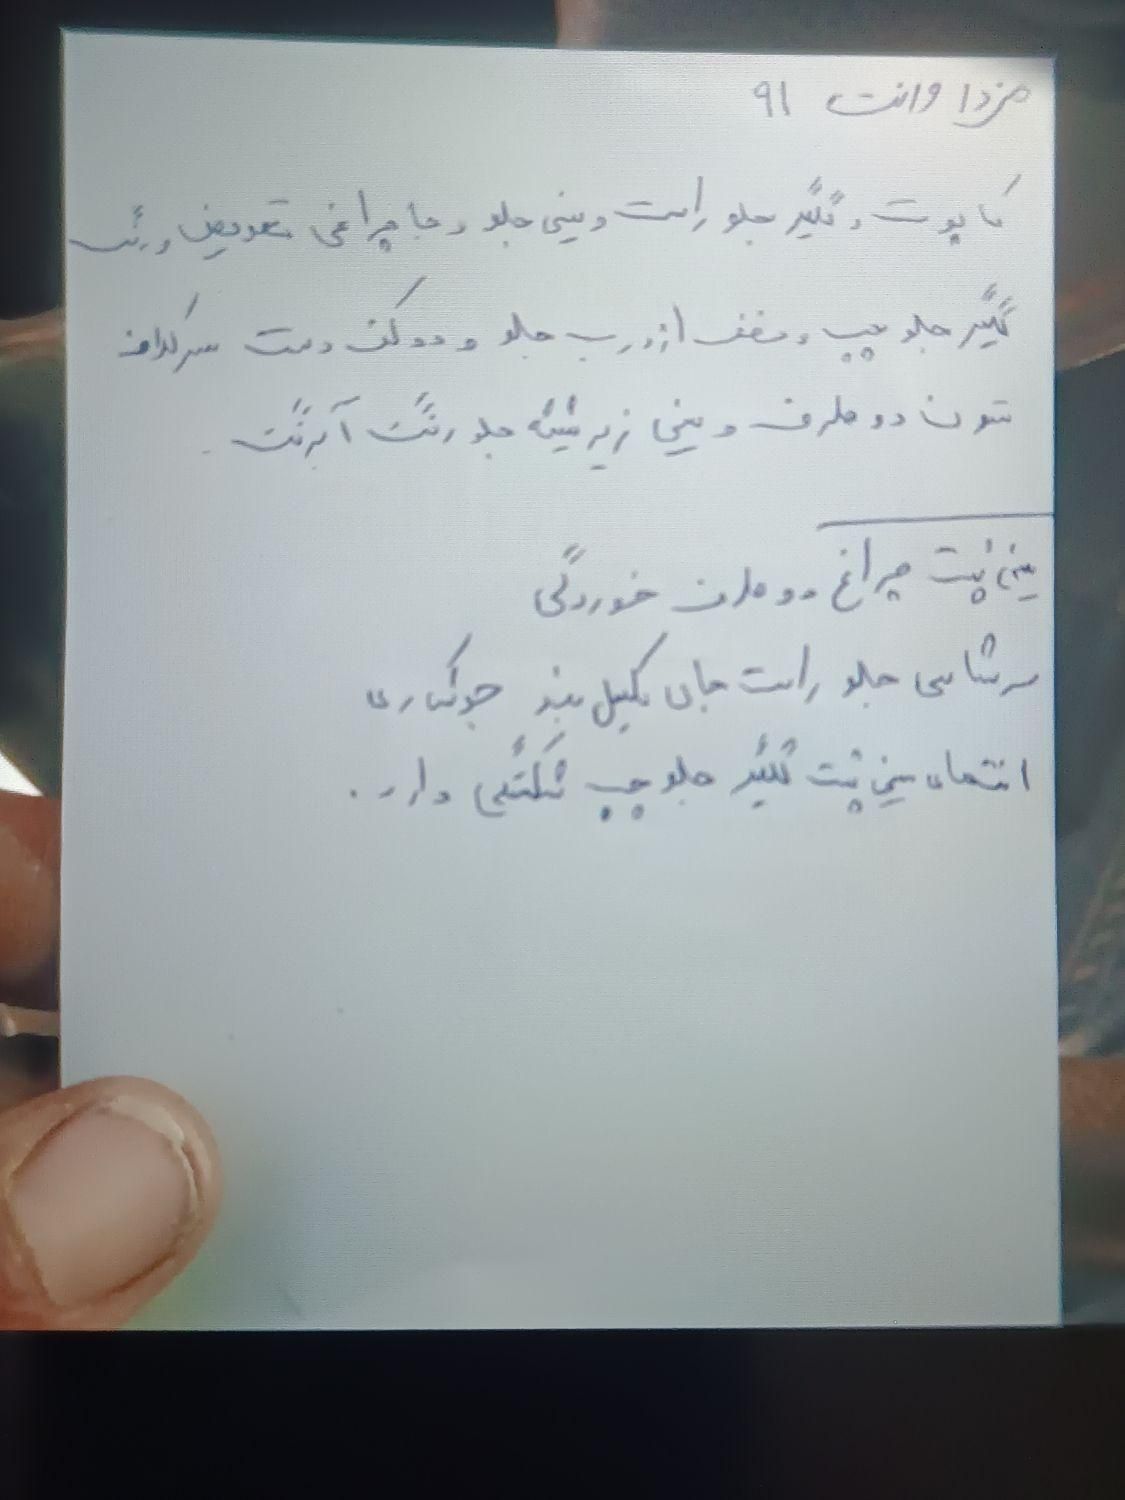 مزدا وانت ۹۱
کاپوت و گلگیر جلو راست و سینی جلو و جا چراغی تعویض و رنگ
گلگیر جلو چپ و سقف از درب جلو و دو لنگه دست
ستون دو طرف و سینی زیر شیشه جلو رنگ آبرنگ
سینی پشت چراغ دو طرف خوردگی
سر شاسی جلو راست جای بند جوشکاری
انتهای سینی پشت گلگیر جلو چپ شکستگی دارد.